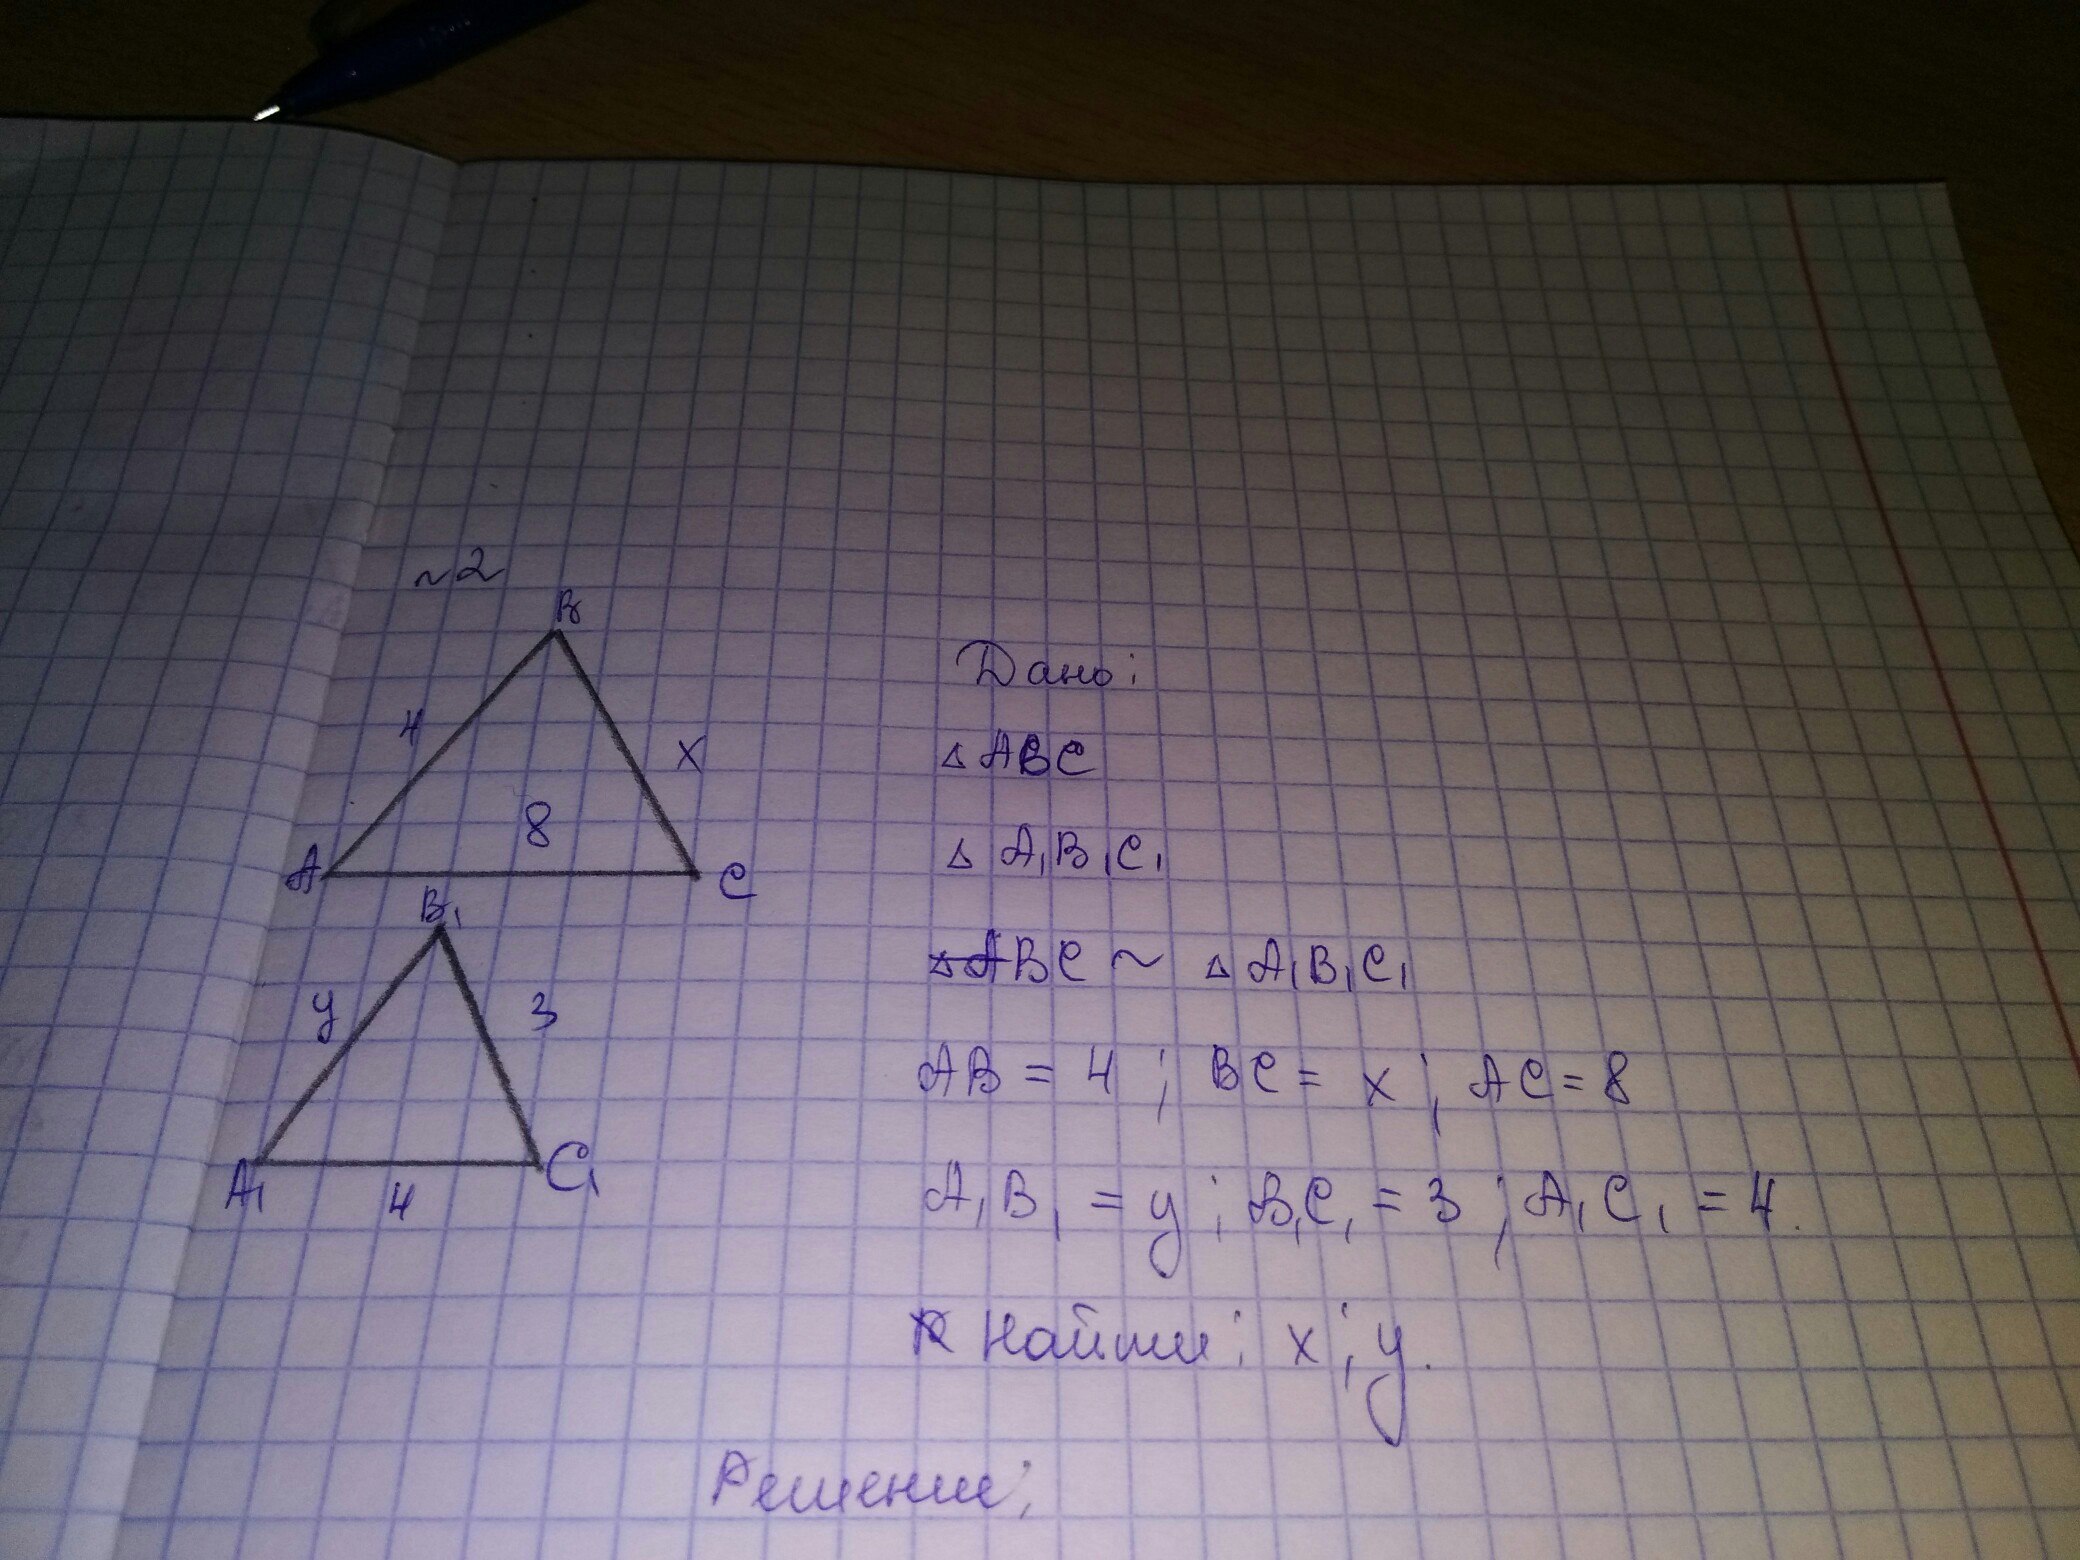 ~2
B
4
x
8
A
C
B₁
y
3
A₁
4
C₁
Дано:
△ ABC
△ A₁B₁C₁
△ABC ~ △ A₁B₁C₁
AB = 4 ; BC = x ; AC = 8
A₁B₁ = y ; B₁C₁ = 3 ; A₁C₁ = 4.
Найти: x ; y.
Решение: